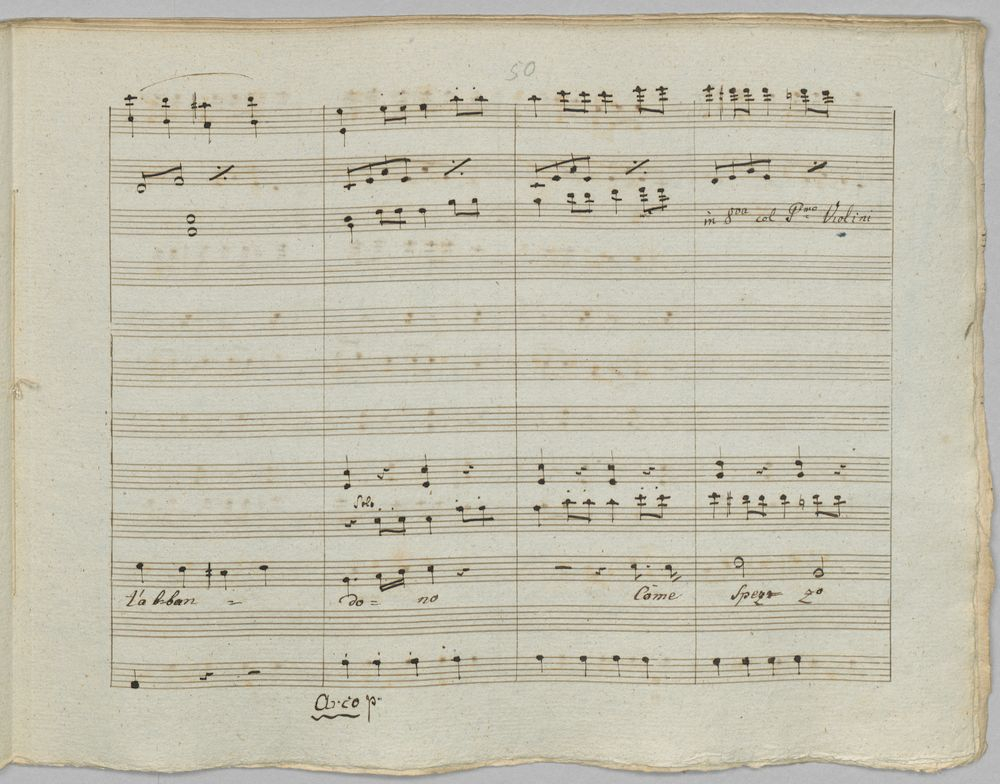 50
in 8va col Pmo Violini
Solo
t'abban = do = no Come spez= zo
Arco p.